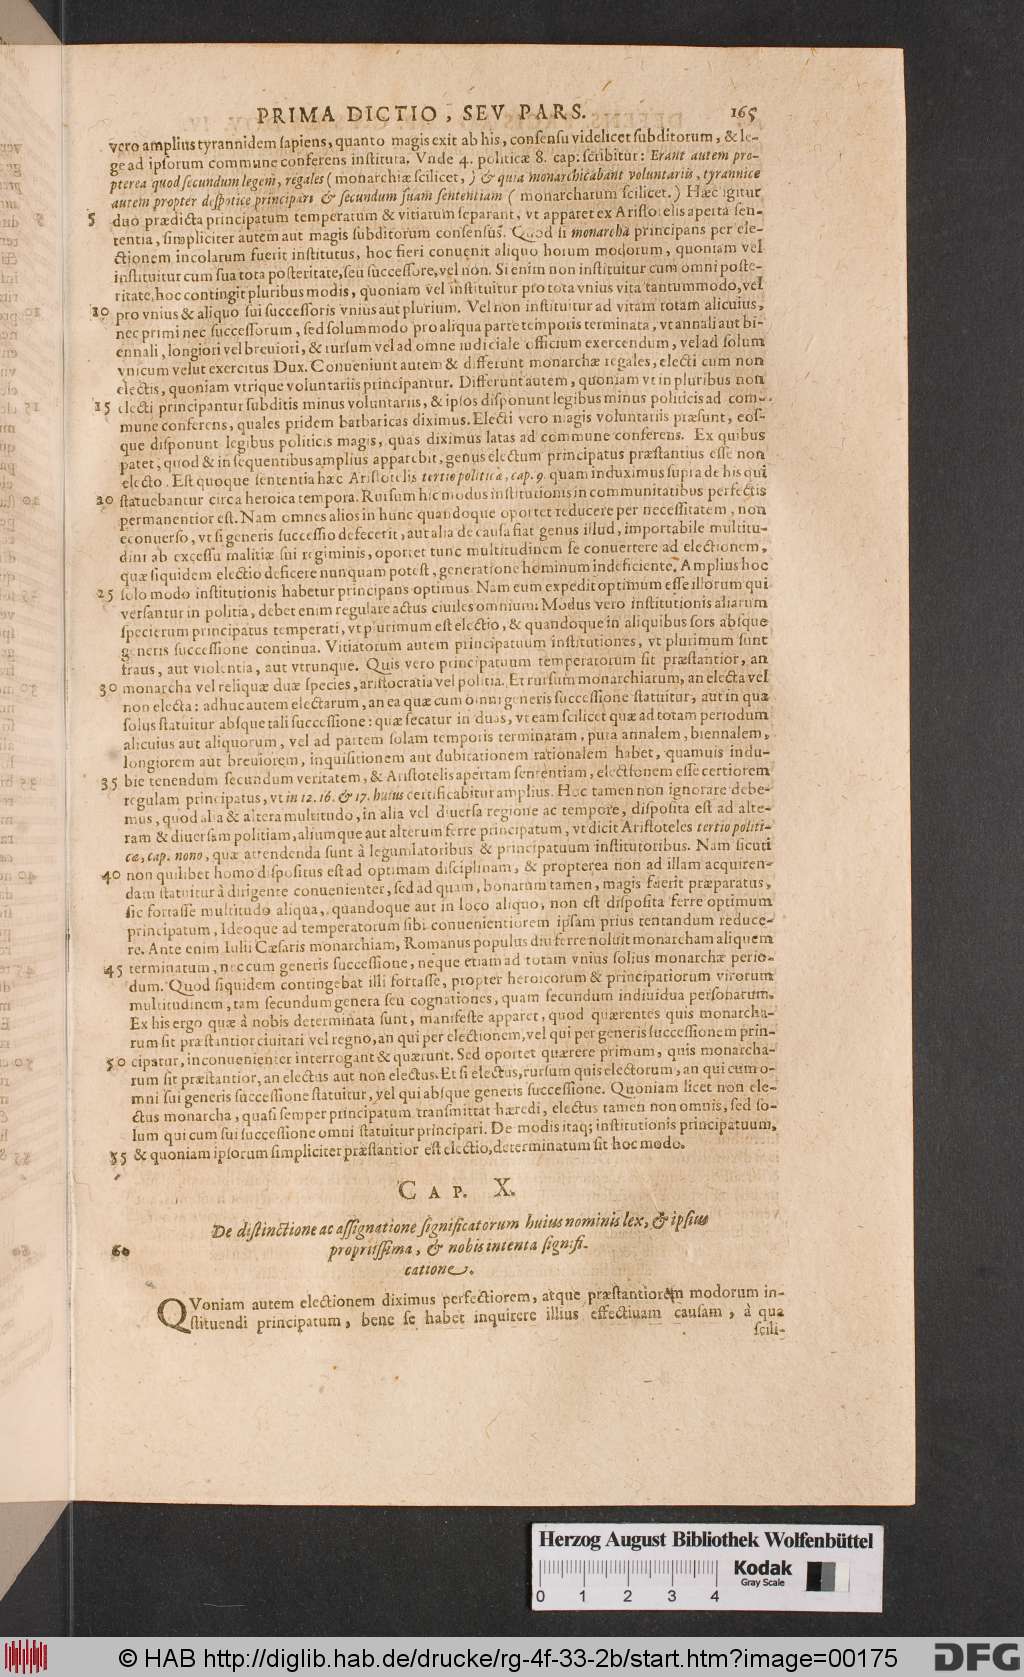 PRIMA DICTIO, SEV PARS. 165
vero amplius tyrannidem sapiens, quanto magis exit ab his, consensu videlicet subditorum, & le-
ge ad ipsorum commune conferens instituta. Vnde 4. politicæ 8. cap: scribitur: Erant autem pro-
pterea quod secundum legem, regales (monarchiæ scilicet,) & quia monarchicabant voluntariis, tyrannice
autem propter despotice principari & secundum suam sententiam (monarcharum scilicet.) Hæc igitur
5 duo prædicta principatum temperatum & vitiatum separant, vt apparet ex Aristotelis aperta sen-
tentia, simpliciter autem aut magis subditorum consensus. Quod si monarcha principans per ele-
ctionem incolarum fuerit institutus, hoc fieri conuenit aliquo horum modorum, quoniam vel
instituitur cum sua tota posteritate, seu successore, vel non. Si enim non instituitur cum omni poste-
ritate, hoc contingit pluribus modis, quoniam vel instituitur pro tota vnius vita tantummodo, vel
10 pro vnius & aliquo sui successoris vnius aut plurium. Vel non instituitur ad vitam totam alicuius,
nec primi nec successorum, sed solummodo pro aliqua parte temporis terminata, vt annali aut bi-
ennali, longiori vel breuiori, & rursum vel ad omne iudiciale officium exercendum, vel ad solum
vnicum velut exercitus Dux. Conueniunt autem & differunt monarchæ regales, electi cum non
electis, quoniam vtrique voluntariis principantur. Differunt autem, quoniam vt in pluribus non
15 electi principantur subditis minus voluntariis, & ipsos disponunt legibus minus politicis ad com-
mune conferens, quales pridem barbaricas diximus. Electi vero magis voluntariis præsunt, eos-
que disponunt legibus politicis magis, quas diximus latas ad commune conferens. Ex quibus
patet, quod & in sequentibus amplius apparebit, genus electum principatus præstantius esse non
electo. Est quoque sententia hæc Aristotelis tertio politicæ, cap. 9. quam induximus supra de his qui
20 statuebantur circa heroica tempora. Rursum hic modus institutionis in communitatibus perfectis
permanentior est. Nam omnes alios in hunc quandoque oportet reducere per necessitatem, non
econuerso, vt si generis successio defecerit, aut alia de causa fiat genus illud, importabile multitu-
dini ab excessu malitiæ sui regiminis, oportet tunc multitudinem se conuertere ad electionem,
quæ siquidem electio deficere nunquam potest, generatione hominum indeficiente. Amplius hoc
25 solo modo institutionis habetur principans optimus. Nam eum expedit optimum esse illorum qui
versantur in politia, debet enim regulare actus ciuiles omnium. Modus vero institutionis aliarum
specierum principatus temperati, vt plurimum est electio, & quandoque in aliquibus sors absque
generis successione continua. Vitiatorum autem principatuum institutiones, vt plurimum sunt
fraus, aut violentia, aut vtrunque. Quis vero principatuum temperatorum sit præstantior, an
30 monarcha vel reliquæ duæ species, aristocratia vel politia. Et rursum monarchiarum, an electa vel
non electa: adhuc autem electarum, an ea quæ cum omni generis successione statuitur, aut in qua
solus statuitur absque tali successione: quæ secatur in duas, vt eam scilicet quæ ad totam periodum
alicuius aut aliquorum, vel ad partem solam temporis terminatam, puta annalem, biennalem,
longiorem aut breuiorem, inquisitionem aut dubitationem rationalem habet, quamuis indu-
35 bie tenendum secundum veritatem, & Aristotelis apertam sententiam, electionem esse certiorem
regulam principatus, vt in 12. 16. & 17. huius certificabitur amplius. Hoc tamen non ignorare debe-
mus, quod alia & altera multitudo, in alia vel diuersa regione ac tempore, disposita est ad alte-
ram & diuersam politiam, aliumque aut alterum ferre principatum, vt dicit Aristoteles tertio politi-
cæ, cap. nono, quæ attendenda sunt à legumlatoribus & principatuum institutoribus. Nam sicuti
40 non quilibet homo dispositus est ad optimam disciplinam, & propterea non ad illam acquiren-
dam statuitur à dirigente conuenienter, sed ad quam, bonarum tamen, magis fuerit præparatus,
sic fortasse multitudo aliqua, quandoque aut in loco aliquo, non est disposita ferre optimum
principatum, Ideoque ad temperatorum sibi conuenientiorem ipsam prius tentandum reduce-
re. Ante enim Iulii Cæsaris monarchiam, Romanus populus diu ferre noluit monarcham aliquem
45 terminatum, nec cum generis successione, neque etiam ad totam vnius solius monarchæ perio-
dum. Quod siquidem contingebat illi fortasse, propter heroicorum & principatiorum virorum
multitudinem, tam secundum genera seu cognationes, quam secundum indiuidua personarum.
Ex his ergo quæ à nobis determinata sunt, manifeste apparet, quod quærentes quis monarcha-
rum sit præstantior ciuitati vel regno, an qui per electionem, vel qui per generis successionem prin-
50 cipatur, inconuenienter interrogant & quærunt. Sed oportet quærere primum, quis monarcha-
rum sit præstantior, an electus aut non electus. Et si electus, rursum quis electorum, an qui cum o-
mni sui generis successione statuitur, vel qui absque generis successione. Quoniam licet non ele-
ctus monarcha, quasi semper principatum transmittat hæredi, electus tamen non omnis, sed so-
lum qui cum sui successione omni statuitur principari. De modis itaq; institutionis principatuum,
55 & quoniam ipsorum simpliciter præstantior est electio, determinatum sit hoc modo.
CAP. X.
De distinctione ac assignatione significatorum huius nominis lex, & ipsius
60 propriissima, & nobis intenta signifi-
catione.
QVoniam autem electionem diximus perfectiorem, atque præstantiorem modorum in-
stituendi principatum, bene se habet inquirere illius effectiuam causam, à qua
scili-
Herzog August Bibliothek Wolfenbüttel
Kodak
Gray Scale
0 1 2 3 4
© HAB http://diglib.hab.de/drucke/rg-4f-33-2b/start.htm?image=00175
DFG